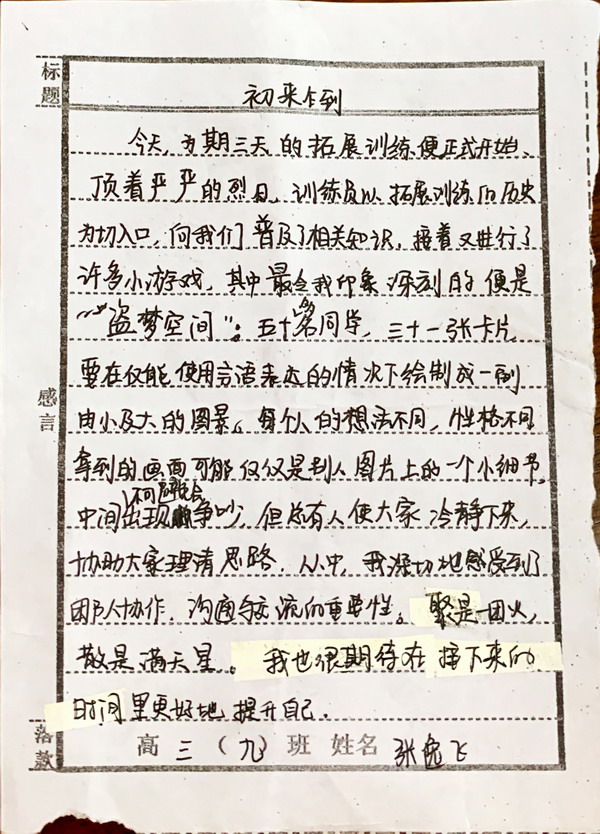 标题
初来乍到
今天,为期三天的拓展训练便正式开始、
顶着严严的烈日,训练员以拓展训练的历史
为切入口,向我们普及了相关知识,接着又进行了
许多小游戏,其中最令我印象深刻的便是
“盗梦空间”:五十名同学,三十一张卡片,
要在仅能使用言语表达的情况下绘制成一副
由小及大的图景。每个人的想法不同,性格不同
拿到的画面可能仅仅是别人图片上的一个小细节,
中间出现争吵,但总有人使大家冷静下来,
协助大家理清思路.从中,我深切地感受到了
团队协作、沟通与交流的重要性。聚是一团火,
散是满天星。我也很期待在接下来的
时间里更好地提升自己.
感言
落款
高三(九)班 姓名 张逸飞